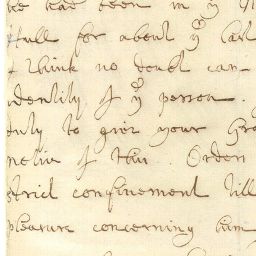 he had been in yᵉ
Hull for about yᵉ
I think no doubt can
identity of yᵉ person.
duty to give your Gra
of this. Orders
strict confinement till
pleasure concerning him